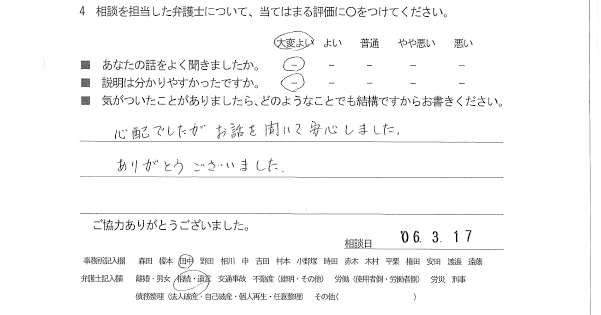 4 相談を担当した弁護士について、当てはまる評価に○をつけてください。
大変よい よい 普通 やや悪い 悪い
■ あなたの話をよく聞きましたか。 － － － － －
■ 説明は分かりやすかったですか。 － － － － －
■ 気がついたことがありましたら、どのようなことでも結構ですからお書きください。
心配でしたがお話を聞いて安心しました.
ありがとうございました.
ご協力ありがとうございました。
相談日 '06. 3. 17
事務所記入欄 森田 榎本 田中 野田 相川 申 吉田 村本 小野塚 時田 赤木 木村 平栗 権田 安田 渡邉 遠藤
弁護士記入欄 離婚・男女 相続・遺言 交通事故 不動産（建明・その他） 労働（使用者側・労働者側） 労災 刑事
債務整理（法人破産・自己破産・個人再生・任意整理） その他( )